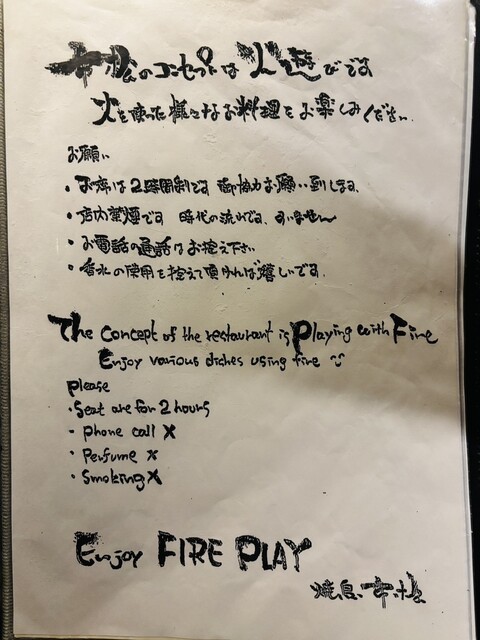 市松のコンセプトは 火遊びです
火を使った様々なお料理をお楽しみください。
お願い
・お席は2時間制です 御協力お願い致します。
・店内禁煙です 時代の流れです。すいません
・お電話の通話はお控え下さい
・香水の使用を控えて頂ければ嬉しいです。
The concept of the restaurant is Playing with Fire
Enjoy various dishes using fire
please
・Seat are for 2 hours
- phone call X
・Perfume x
・Smoking X
Enjoy FIRE PLAY
焼鳥 市松